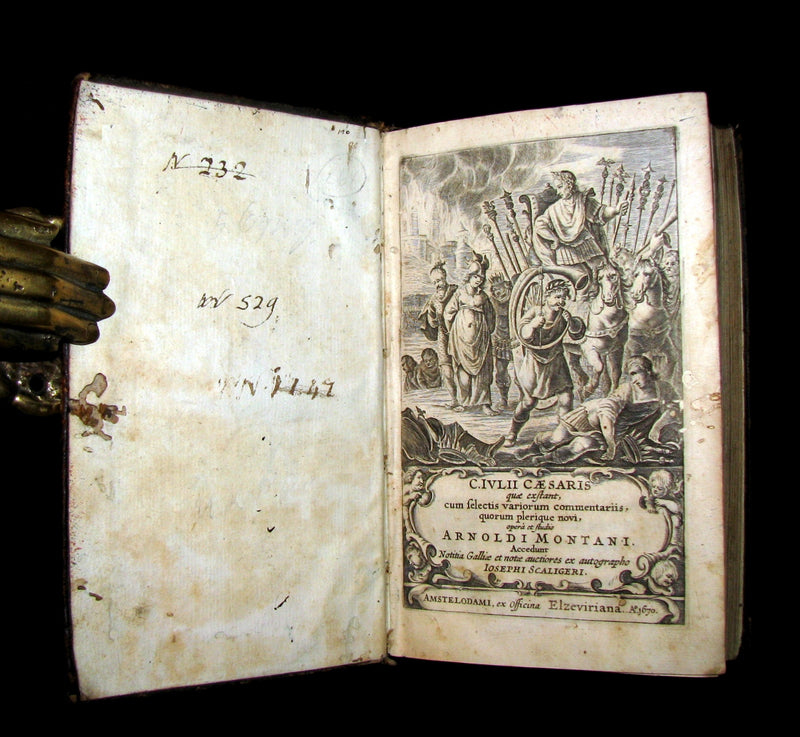 N 232
N 529
N 1147
C. IVLII CÆSARIS
quæ exſtant,
cum ſelectis variorum commentariis,
quorum plerique novi,
operâ et ſtudio
ARNOLDI MONTANI.
Accedunt
Notitia Galliæ et notæ auctiores ex autographo
IOSEPHI SCALIGERI.
AMSTELODAMI, ex Officina Elzeviriana. Aº 1670.